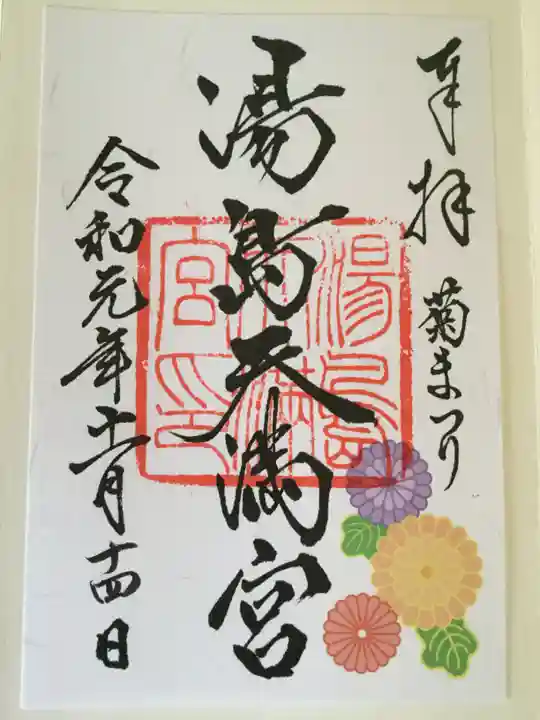 奉拝 菊まつり
湯島天満宮
湯島天満宮印
令和元年十一月十四日